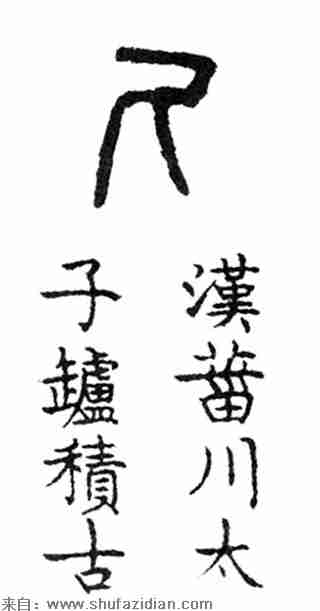 尺
漢菑川太
子罏積古
来自：www.shufazidian.com